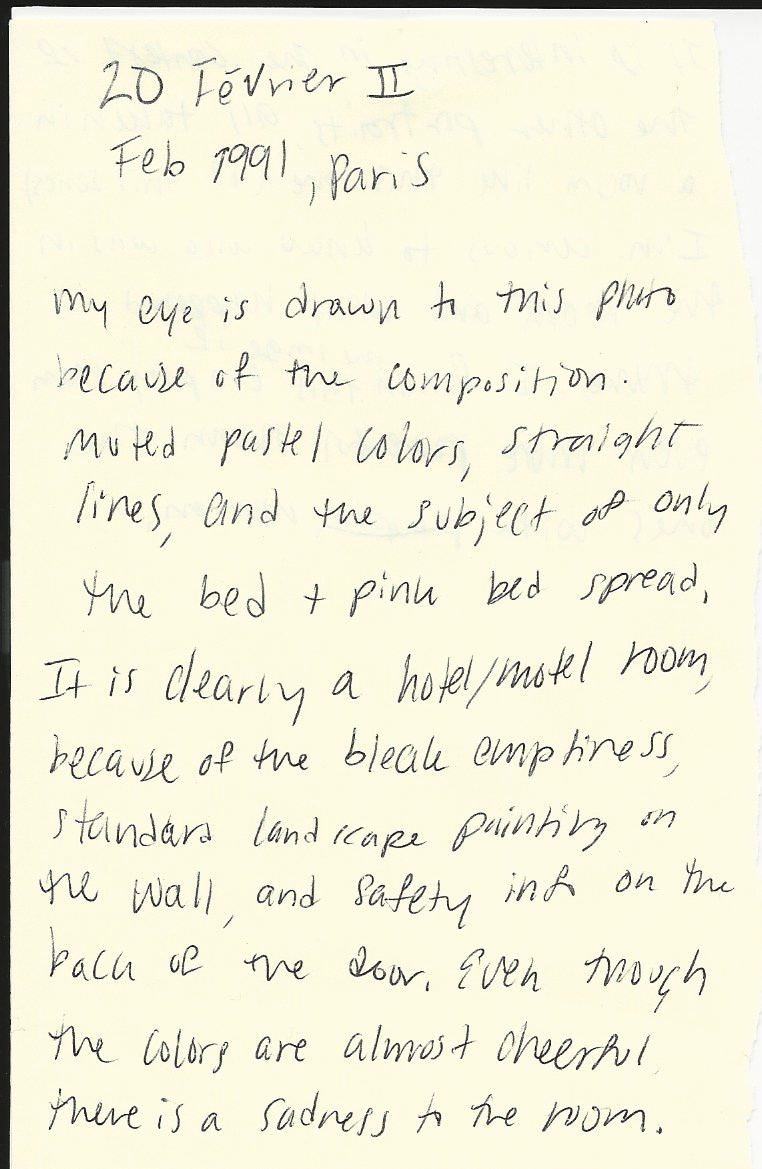 20 Février II
Feb 1991, Paris
my eye is drawn to this photo
because of the composition.
Muted pastel colors, straight
lines, and the subject of only
the bed + pink bed spread.
It is clearly a hotel/motel room,
because of the bleak emptiness,
standard landscape painting on
the wall, and safety info on the
back of the door. Even though
the colors are almost cheerful,
there is a sadness to the room.